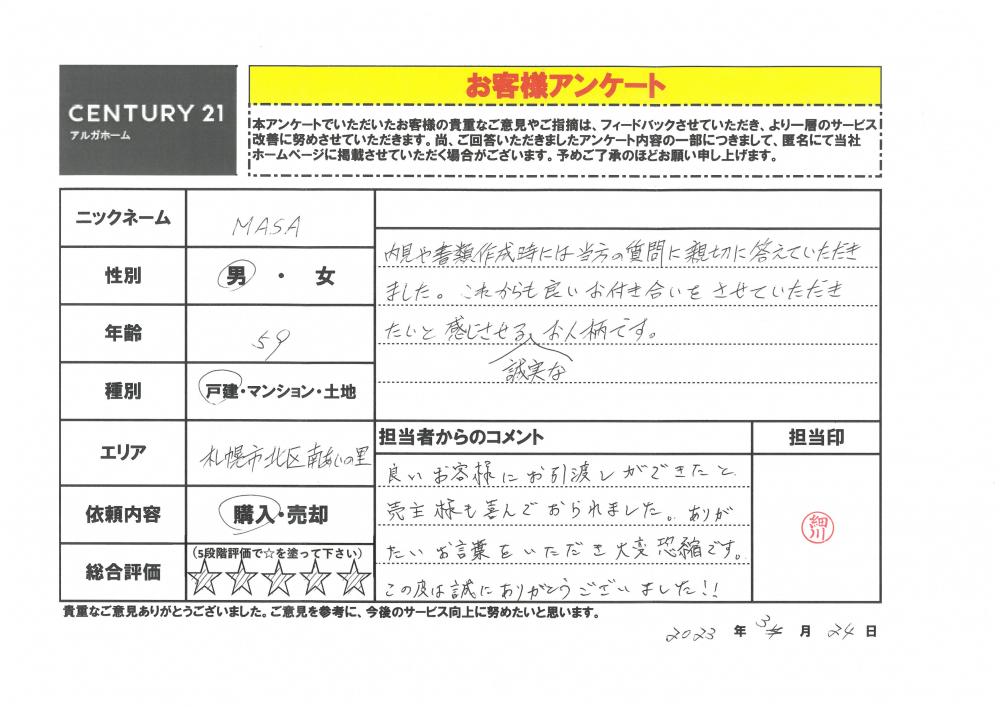 CENTURY 21
アルガホーム
お客様アンケート
本アンケートでいただいたお客様の貴重なご意見やご指摘は、フィードバックさせていただき、より一層のサービス
改善に努めさせていただきます。尚、ご回答いただきましたアンケート内容の一部につきまして、匿名にて当社
ホームページに掲載させていただく場合がございます。予めご了承のほどお願い申し上げます。
ニックネーム MASA
性別 男・女
年齢 59
種別 戸建・マンション・土地
エリア 札幌市北区南あいの里
依頼内容 購入・売却
総合評価 (5段階評価で☆を塗って下さい)
内見や書類作成時には当方の質問に親切に答えていただき
ました。これからも良いお付き合いをさせていただき
たいと感じさせるお人柄です。
誠実な
担当者からのコメント
良いお客様にお引渡しができたと
売主様も喜んでおられました。ありが
たいお言葉をいただき大変恐縮です。
この度は誠にありがとうございました!!
担当印
細川
貴重なご意見ありがとうございました。ご意見を参考に、今後のサービス向上に努めたいと思います。
2023 年 3 月 24 日